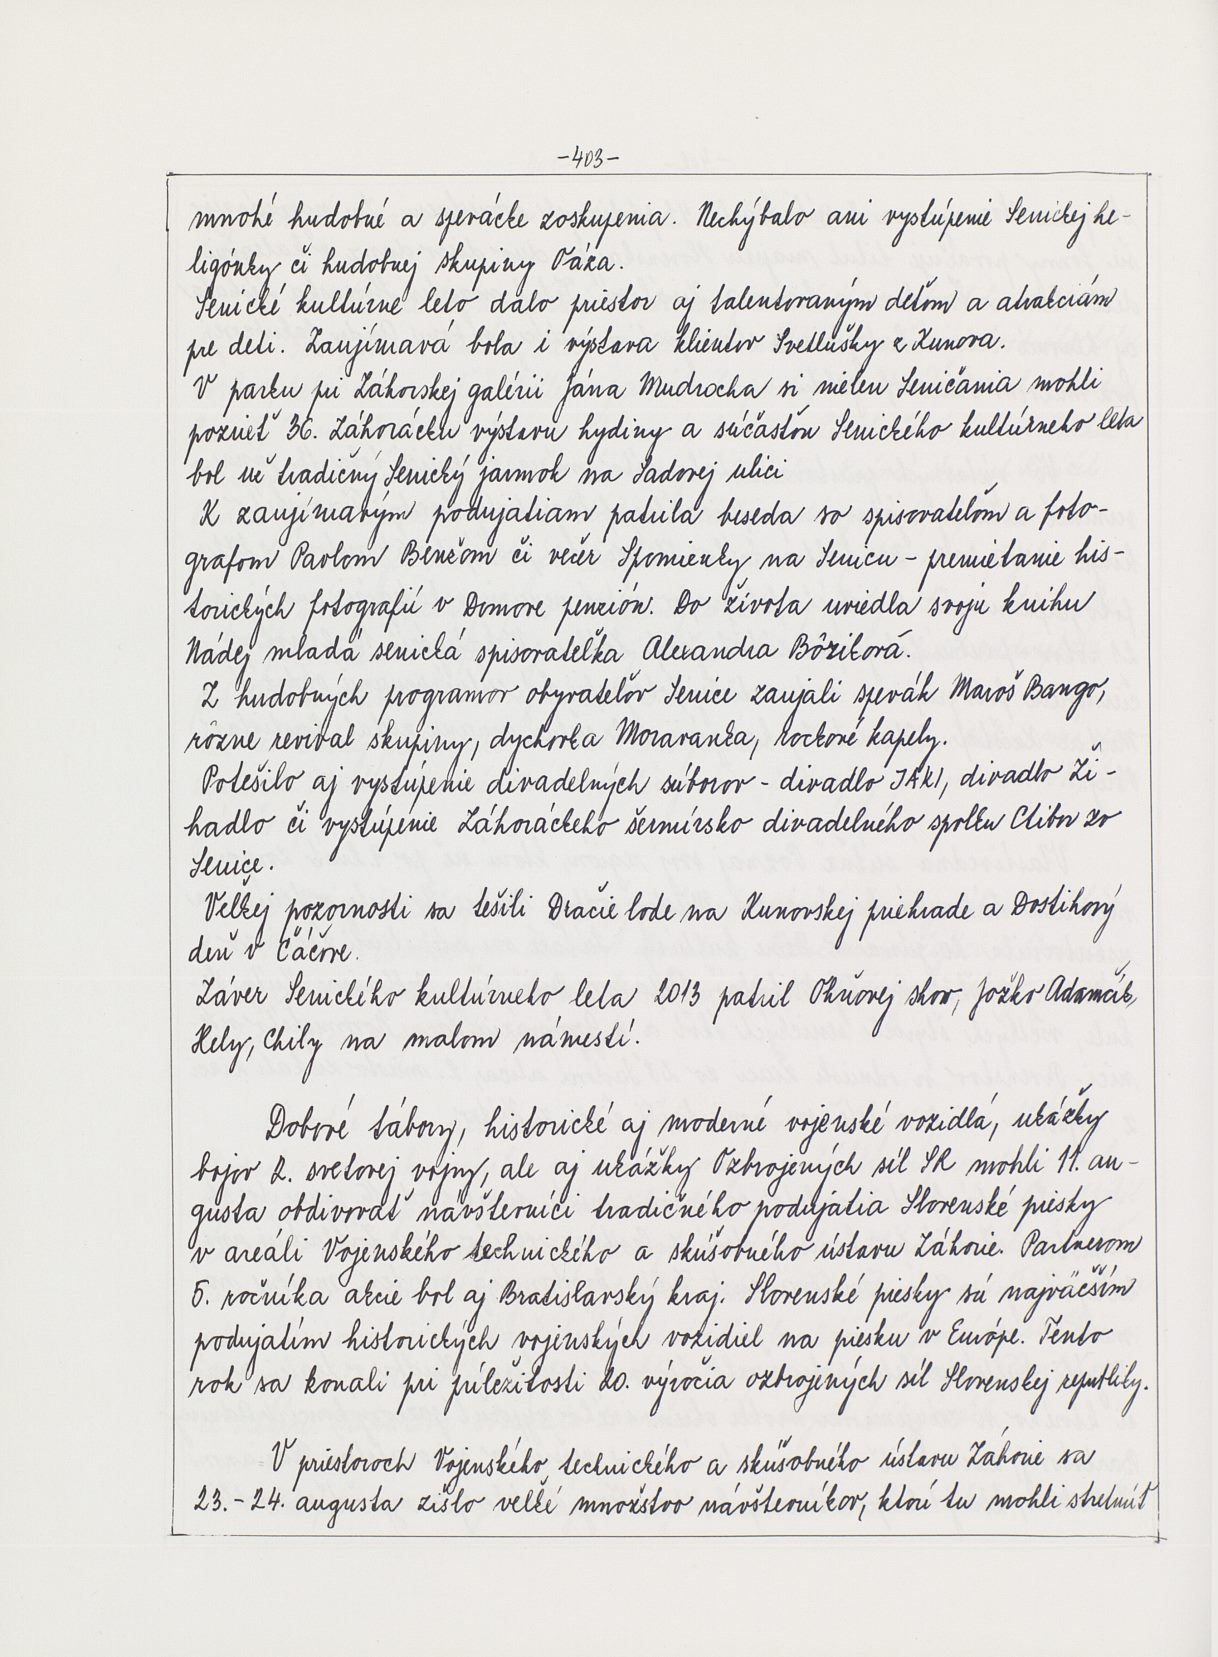 -403-
mnohé hudobné a spevácke zoskupenia. Nechýbalo ani vystúpenie Senickej he-
ligónky či hudobnej skupiny Oáza.
Senické kultúrne leto dalo priestor aj talentovaným deťom a atrakciám
pre deti. Zaujímavá bola i výstava klientov Svetlušky z Kunova.
V parku pri Záhorskej galérii Jána Mudrocha si nielen Seničania mohli
pozrieť 36. Záhorácku výstavu hydiny a súčasťou Senického kultúrneho leta
bol už tradičný Senický jarmok na Sadovej ulici
K zaujímavým podujatiam patrila beseda so spisovateľom a foto-
grafom Pavlom Benčom či večer Spomienky na Senicu - premietanie his-
torických fotografií v Domove penzión. Do života uviedla svoju knihu
Nádej mladá senická spisovateľka Alexandra Bôžiková.
Z hudobných programov obyvateľov Senice zaujali spevák Maroš Bango,
rôzne revival skupiny, dychovka Moravanka, rockové kapely.
Potešilo aj vystúpenie divadelných súborov - divadlo JAKI, divadlo Ži-
hadlo či vystúpenie Záhoráckeho šermírsko divadelného spolku Ctibor zo
Senice.
Veľkej pozornosti sa tešili Dračie lode na Kunovskej priehrade a Dostihový
deň v Čáčove.
Záver Senického kultúrneho leta 2013 patril Oňovej show, Jožko Adamčík,
Hely, Chily na malom námestí.
Dobové tábory, historické aj moderné vojenské vozidlá, ukážky
bojov 2. svetovej vojny, ale aj ukážky Ozbrojených síl SR mohli 11. au-
gusta obdivovať návšterníci tradičného podujatia Slovenské piesky
v areáli Vojenského technického a skúšobného ústavu Záhorie. Partnerom
5. ročníka akcie bol aj Bratislavský kraj. Slovenské piesky sú najväčším
podujatím historických vojenských vozidiel na piesku v Európe. Tento
rok sa konali pri príležitosti 20. výročia ozbrojených síl Slovenskej republiky.
V priestoroch Vojenského technického a skúšobného ústavu Záhorie sa
23.-24. augusta zišlo veľké množstvo návšterníkov, ktorí tu mohli stretnúť